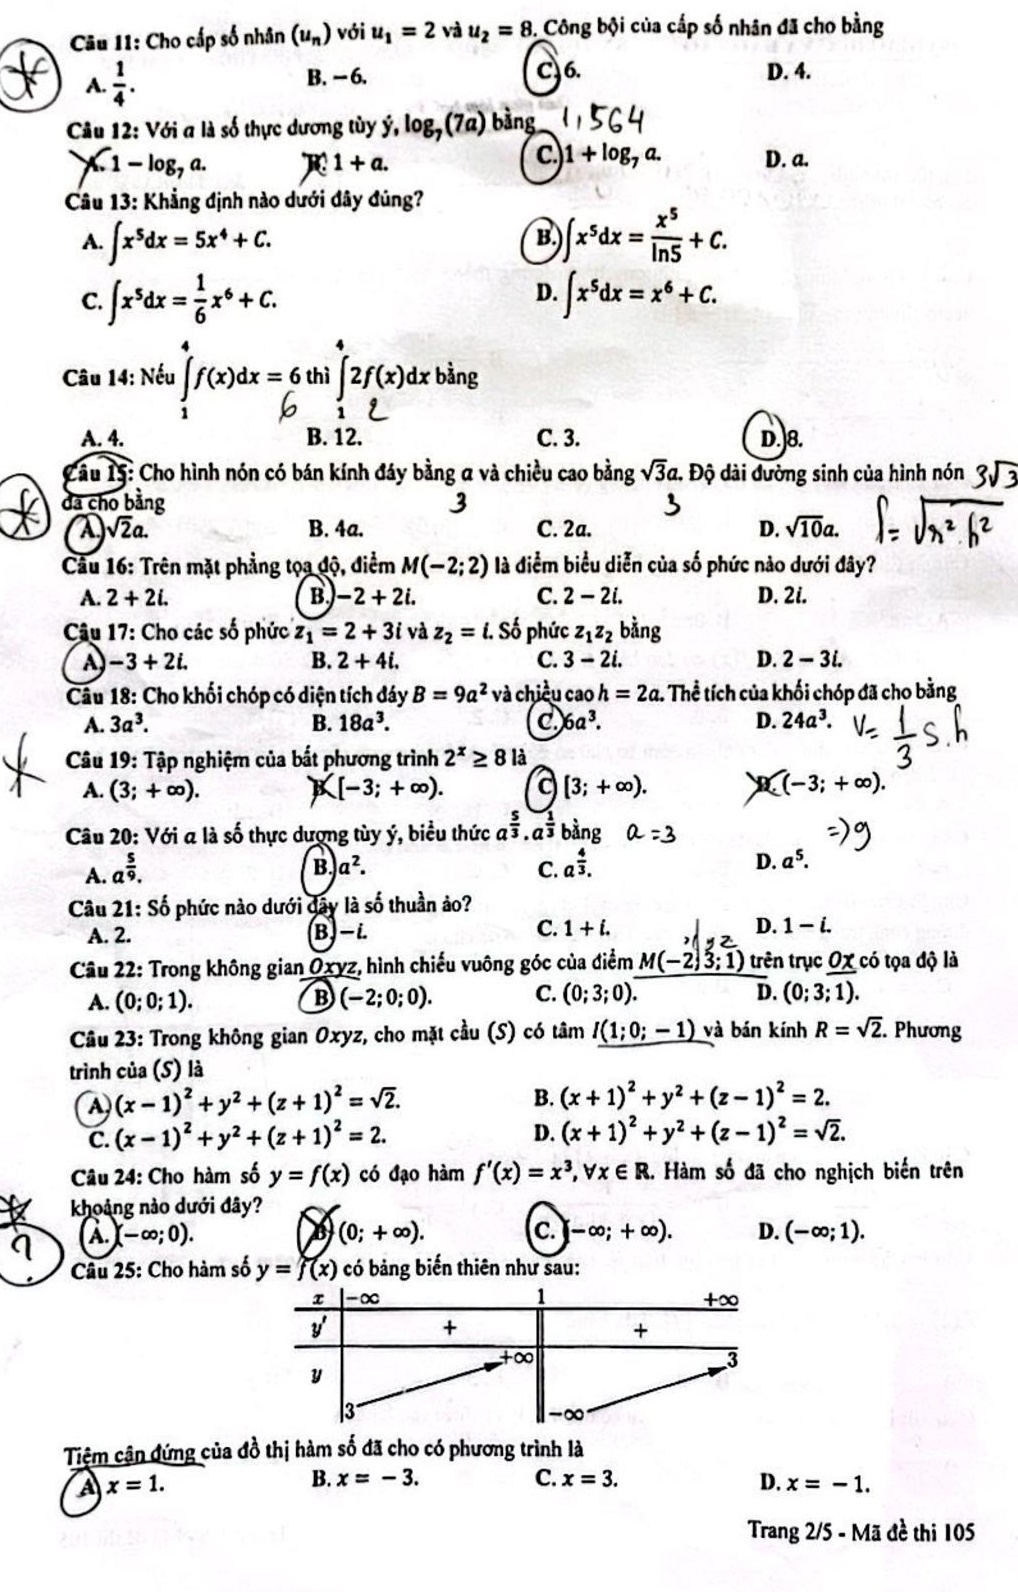 Câu 11: Cho cấp số nhân (uₙ) với u₁ = 2 và u₂ = 8. Công bội của cấp số nhân đã cho bằng
A. 1/4. B. −6. C. 6. D. 4.
Câu 12: Với a là số thực dương tùy ý, log₇(7a) bằng 1,564
A. 1 − log₇ a. B. 1 + a. C. 1 + log₇ a. D. a.
Câu 13: Khẳng định nào dưới đây đúng?
A. ∫x⁵dx = 5x⁴ + C. B. ∫x⁵dx = x⁵/ln5 + C.
C. ∫x⁵dx = 1/6 x⁶ + C. D. ∫x⁵dx = x⁶ + C.
Câu 14: Nếu ∫₁⁴ f(x)dx = 6 thì ∫₁⁴ 2f(x)dx bằng
6 2
A. 4. B. 12. C. 3. D. 8.
Câu 15: Cho hình nón có bán kính đáy bằng a và chiều cao bằng √3a. Độ dài đường sinh của hình nón 3√3
đã cho bằng 3 3
A. √2a. B. 4a. C. 2a. D. √10a.
Câu 16: Trên mặt phẳng tọa độ, điểm M(−2; 2) là điểm biểu diễn của số phức nào dưới đây?
A. 2 + 2i. B. −2 + 2i. C. 2 − 2i. D. 2i.
Câu 17: Cho các số phức z₁ = 2 + 3i và z₂ = i. Số phức z₁z₂ bằng
A. −3 + 2i. B. 2 + 4i. C. 3 − 2i. D. 2 − 3i.
Câu 18: Cho khối chóp có diện tích đáy B = 9a² và chiều cao h = 2a. Thể tích của khối chóp đã cho bằng
A. 3a³. B. 18a³. C. 6a³. D. 24a³. V= 1/3 S.h
Câu 19: Tập nghiệm của bất phương trình 2ˣ ≥ 8 là
A. (3; +∞). B. [−3; +∞). C. [3; +∞). D. (−3; +∞).
Câu 20: Với a là số thực dương tùy ý, biểu thức a^(5/3).a^(1/3) bằng a =3 =>9
A. a^(5/9). B. a². C. a^(4/3). D. a⁵.
Câu 21: Số phức nào dưới đây là số thuần ảo?
A. 2. B. −i. C. 1 + i. D. 1 − i.
Câu 22: Trong không gian Oxyz, hình chiếu vuông góc của điểm M(−2; 3; 1) trên trục Ox có tọa độ là
A. (0; 0; 1). B. (−2; 0; 0). C. (0; 3; 0). D. (0; 3; 1).
Câu 23: Trong không gian Oxyz, cho mặt cầu (S) có tâm I(1; 0; − 1) và bán kính R = √2. Phương
trình của (S) là
A. (x − 1)² + y² + (z + 1)² = √2. B. (x + 1)² + y² + (z − 1)² = 2.
C. (x − 1)² + y² + (z + 1)² = 2. D. (x + 1)² + y² + (z − 1)² = √2.
Câu 24: Cho hàm số y = f(x) có đạo hàm f′(x) = x³, ∀x ∈ ℝ. Hàm số đã cho nghịch biến trên
khoảng nào dưới đây?
? A. (−∞; 0). B. (0; +∞). C. (−∞; +∞). D. (−∞; 1).
Câu 25: Cho hàm số y = f(x) có bảng biến thiên như sau:
x −∞ 1 +∞
y′ + +
y 3 +∞ −∞ 3
Tiệm cận đứng của đồ thị hàm số đã cho có phương trình là
A. x = 1. B. x = − 3. C. x = 3. D. x = − 1.
Trang 2/5 - Mã đề thi 105